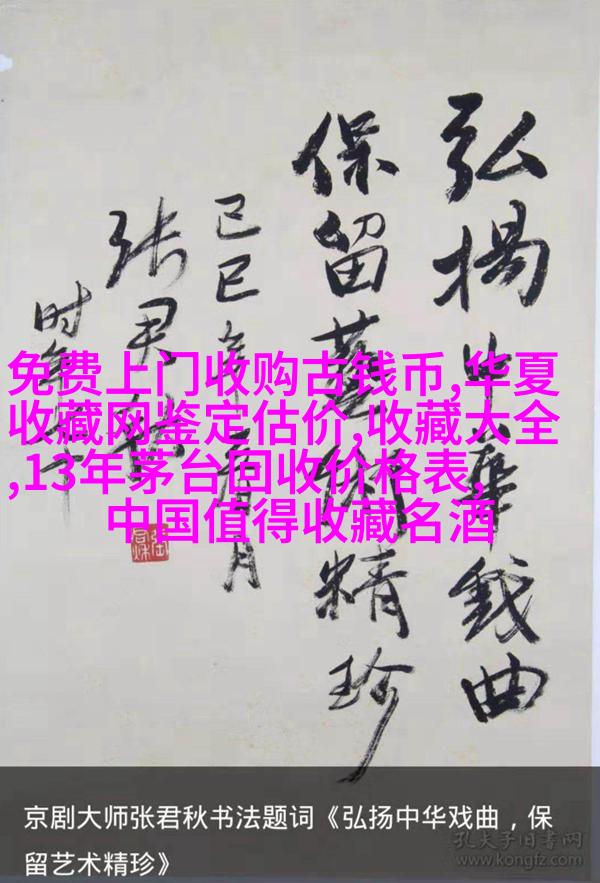 弘揚中華戏曲
保留藝術精珍
己巳年月
张君秋
时年
免费上门收购古钱币,华夏
收藏网鉴定估价,收藏大全
,13年茅台回收价格表,
中国值得收藏名酒
京剧大师张君秋书法题词《弘扬中华戏曲，保
留艺术精珍》
孔夫子旧书网
www.kongfz.com